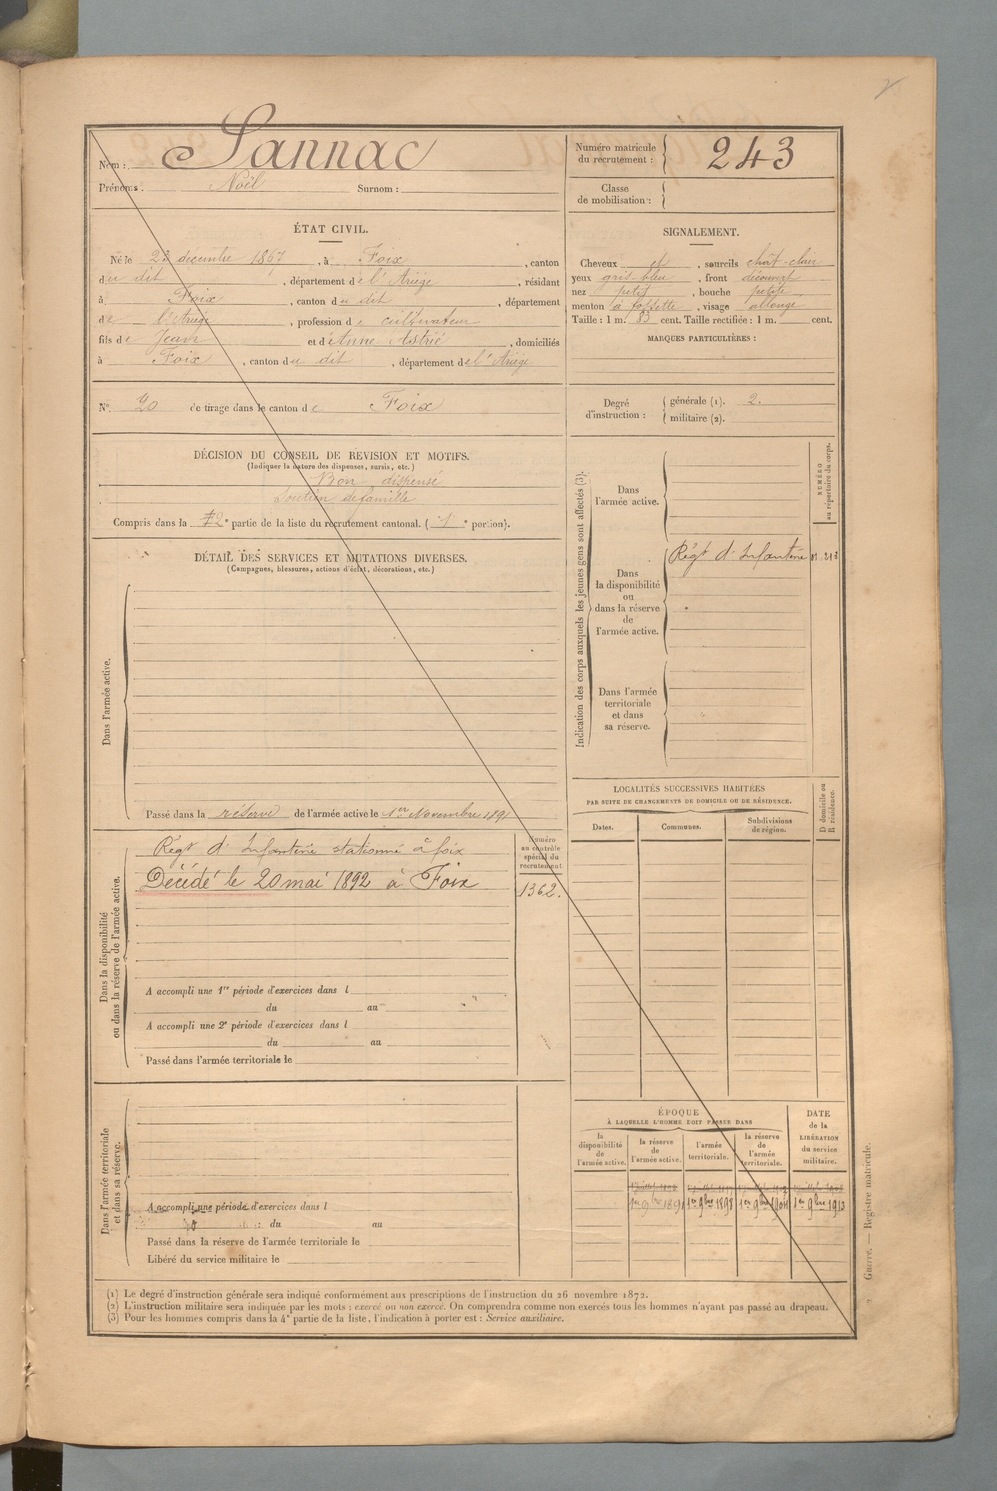 Nom : Sannac
Prénoms : Noël Surnom :
Numéro matricule du recrutement : 243
Classe de mobilisation :
ÉTAT CIVIL.
Né le 23 décembre 1867, à Foix, canton
du dit, département de l'Ariège, résidant
à Foix, canton du dit, département
de l'Ariège, profession de cultivateur
fils de Jean et d'Anne Astrié, domiciliés
à Foix, canton du dit, département de l'Ariège
SIGNALEMENT.
Cheveux et, sourcils chât-clair
yeux gris-bleu, front découvert
nez petit, bouche petite
menton à fossette, visage allongé
Taille : 1 m. 83 cent. Taille rectifiée : 1 m. cent.
MARQUES PARTICULIÈRES :
N° 20 de tirage dans le canton de Foix
Degré d'instruction : générale (1). 2.
militaire (2).
DÉCISION DU CONSEIL DE REVISION ET MOTIFS.
(Indiquer la nature des dispenses, sursis, etc.)
Bon dispensé
Soutien de famille
Compris dans la 2e partie de la liste du recrutement cantonal. ( 1 e portion).
DÉTAIL DES SERVICES ET MUTATIONS DIVERSES.
(Campagnes, blessures, actions d'éclat, décorations, etc.)
Dans l'armée active.
Passé dans la réserve de l'armée active le 1er Novembre 1891
Indication des corps auxquels les jeunes gens sont affectés (3).
NUMÉRO au répertoire du corps.
Dans l'armée active.
Dans la disponibilité ou dans la réserve de l'armée active.
Régt d'Infanterie
Dans l'armée territoriale et dans sa réserve.
Dans la disponibilité ou dans la réserve de l'armée active.
Régt d'Infanterie stationné à foix
Décédé le 20 mai 1892 à Foix
Numéro au contrôle spécial du recrutement.
1362.
A accompli une 1re période d'exercices dans l
du au
A accompli une 2e période d'exercices dans l
du au
Passé dans l'armée territoriale le
LOCALITÉS SUCCESSIVES HABITÉES
PAR SUITE DE CHANGEMENTS DE DOMICILE OU DE RÉSIDENCE.
Dates. Communes. Subdivisions de région. D domicile ou R résidence.
Dans l'armée territoriale et dans sa réserve.
A accompli une période d'exercices dans l
du au
Passé dans la réserve de l'armée territoriale le
Libéré du service militaire le
ÉPOQUE
À LAQUELLE L'HOMME DOIT PASSER DANS
la disponibilité de l'armée active.
la réserve de l'armée active.
l'armée territoriale.
la réserve de l'armée territoriale.
DATE de la LIBÉRATION du service militaire.
1er 9bre 1891 1er 9bre 1898 1er 9bre 1904 1er 9bre 1913
(1) Le degré d'instruction générale sera indiqué conformément aux prescriptions de l'instruction du 26 novembre 1872.
(2) L'instruction militaire sera indiquée par les mots : exercé ou non exercé. On comprendra comme non exercés tous les hommes n'ayant pas passé au drapeau.
(3) Pour les hommes compris dans la 4e partie de la liste, l'indication à porter est : Service auxiliaire.
Guerre. — Registre matricule.